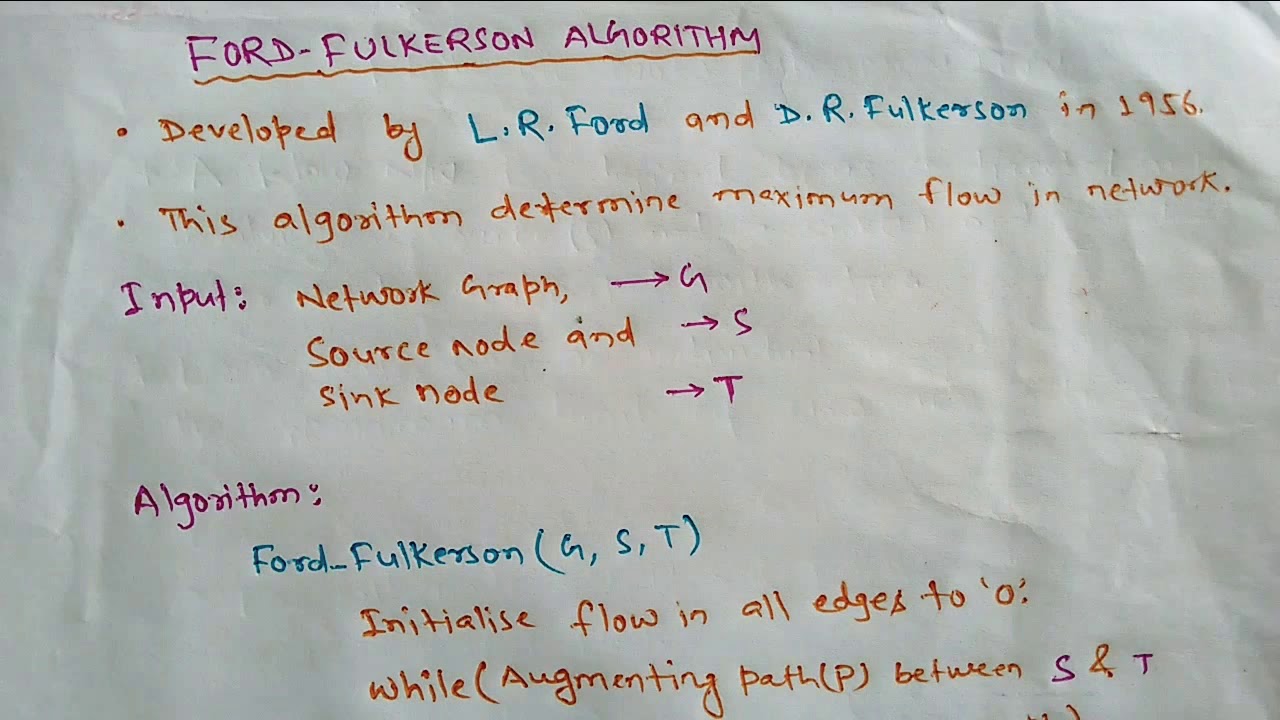 FORD-FULKERSON ALGORITHM
• Developed by L.R. Ford and D.R. Fulkerson in 1956.
• This algorithm determine maximum flow in network.
Input: Network Graph, → G
Source node and → S
sink node → T
Algorithm:
Ford-Fulkerson (G, S, T)
Initialise flow in all edges to '0'.
while (Augmenting path(P) between S & T